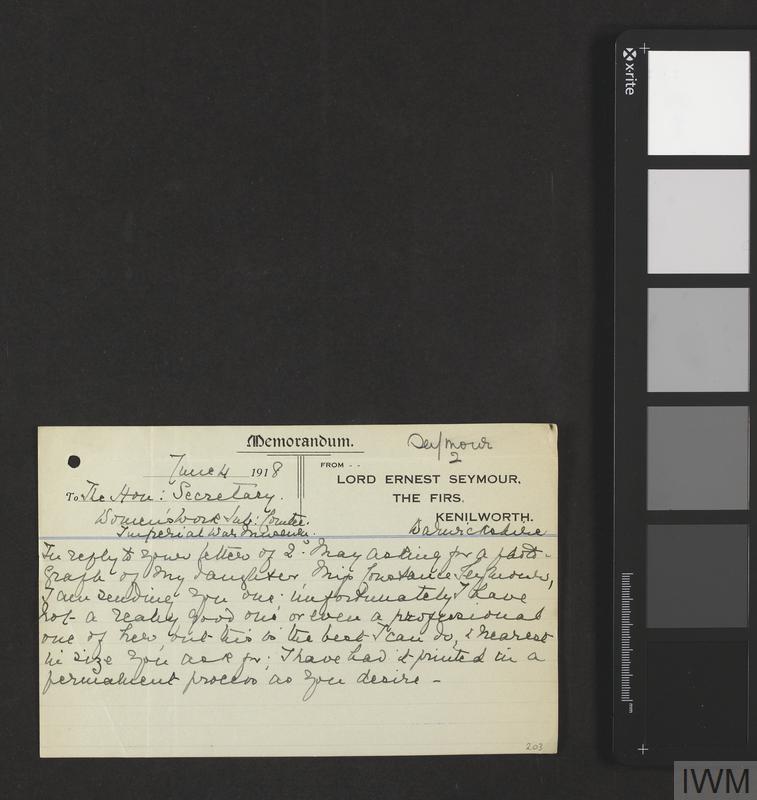 Memorandum.
Seymour
2
June 4 1918
FROM - -
LORD ERNEST SEYMOUR,
To The Hon: Secretary.
THE FIRS,
Women's Work Sub: Comtee.
KENILWORTH.
Imperial War Museum.
Warwickshire
In reply to your letter of 2d May asking for a photo-
graph of my daughter, Miss Constance Seymour,
I am sending you one: unfortunately I have
not a really good one, or even a professional
one of her, but this is the best I can do, & nearest
in size you ask for; I have had it printed in a
permanent process as you desire -
203
x-rite
mm
IWM